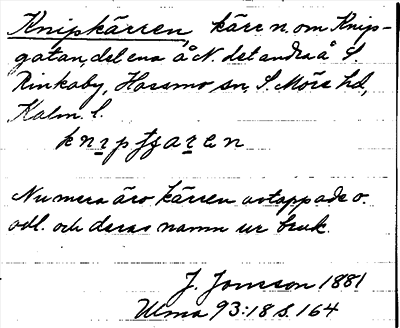 Knipkärren, kärr n. om Knip-
gatan, det ena å N. det andra å S.
Rinkaby, Hossmo sn, S. Möre hd,
Kalm. l.
knɪpfjarən
Numera äro kärren avtappade o.
odl. och deras namn ur bruk.
J. Jonsson 1881
Ulma 93:18 s. 164